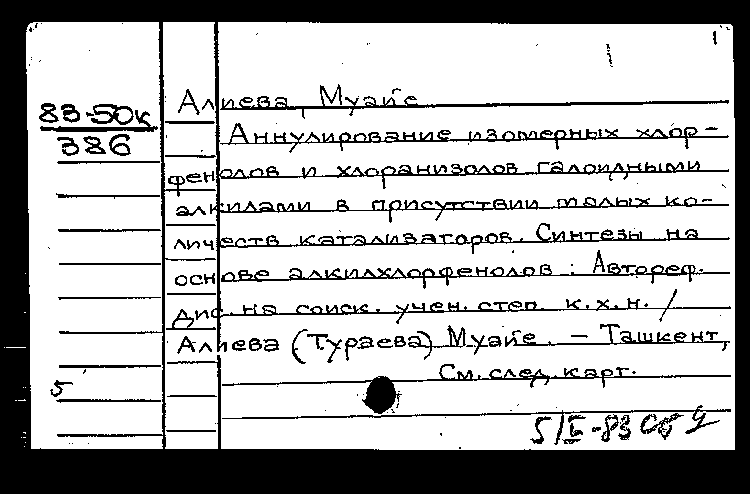 1
Алиева, Муайе
83-50к
386
Аннулирование изомерных хлор-
фенолов и хлоранизолов галоидными
алкилами в присутствии малых ко-
личеств катализаторов. Синтезы на
основе алкилхлорфенолов : Автореф.
дис. на соиск. учен. степ. к.х.н. /
Алиева (Тураева) Муайе. — Ташкент,
См. след. карт.
5